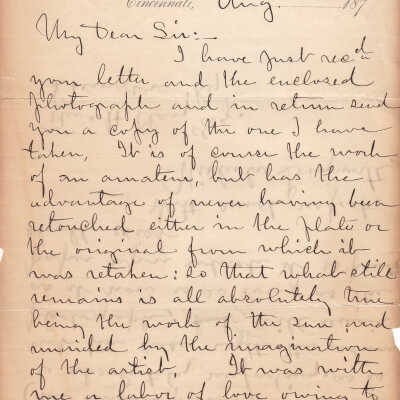 Cincinnati, Aug. 187
My Dear Sir:-
I have just recd
your letter and the enclosed
photograph and in return send
you a copy of the one I have
taken. It is of course the work
of an amateur, but has the
advantage of never having been
retouched either in the plate or
the original from which it
was retaken: so that what still
remains is all absolutely true
being the work of the sun and
unaided by the imagination
of the artist. It was with
me a labor of love owing to